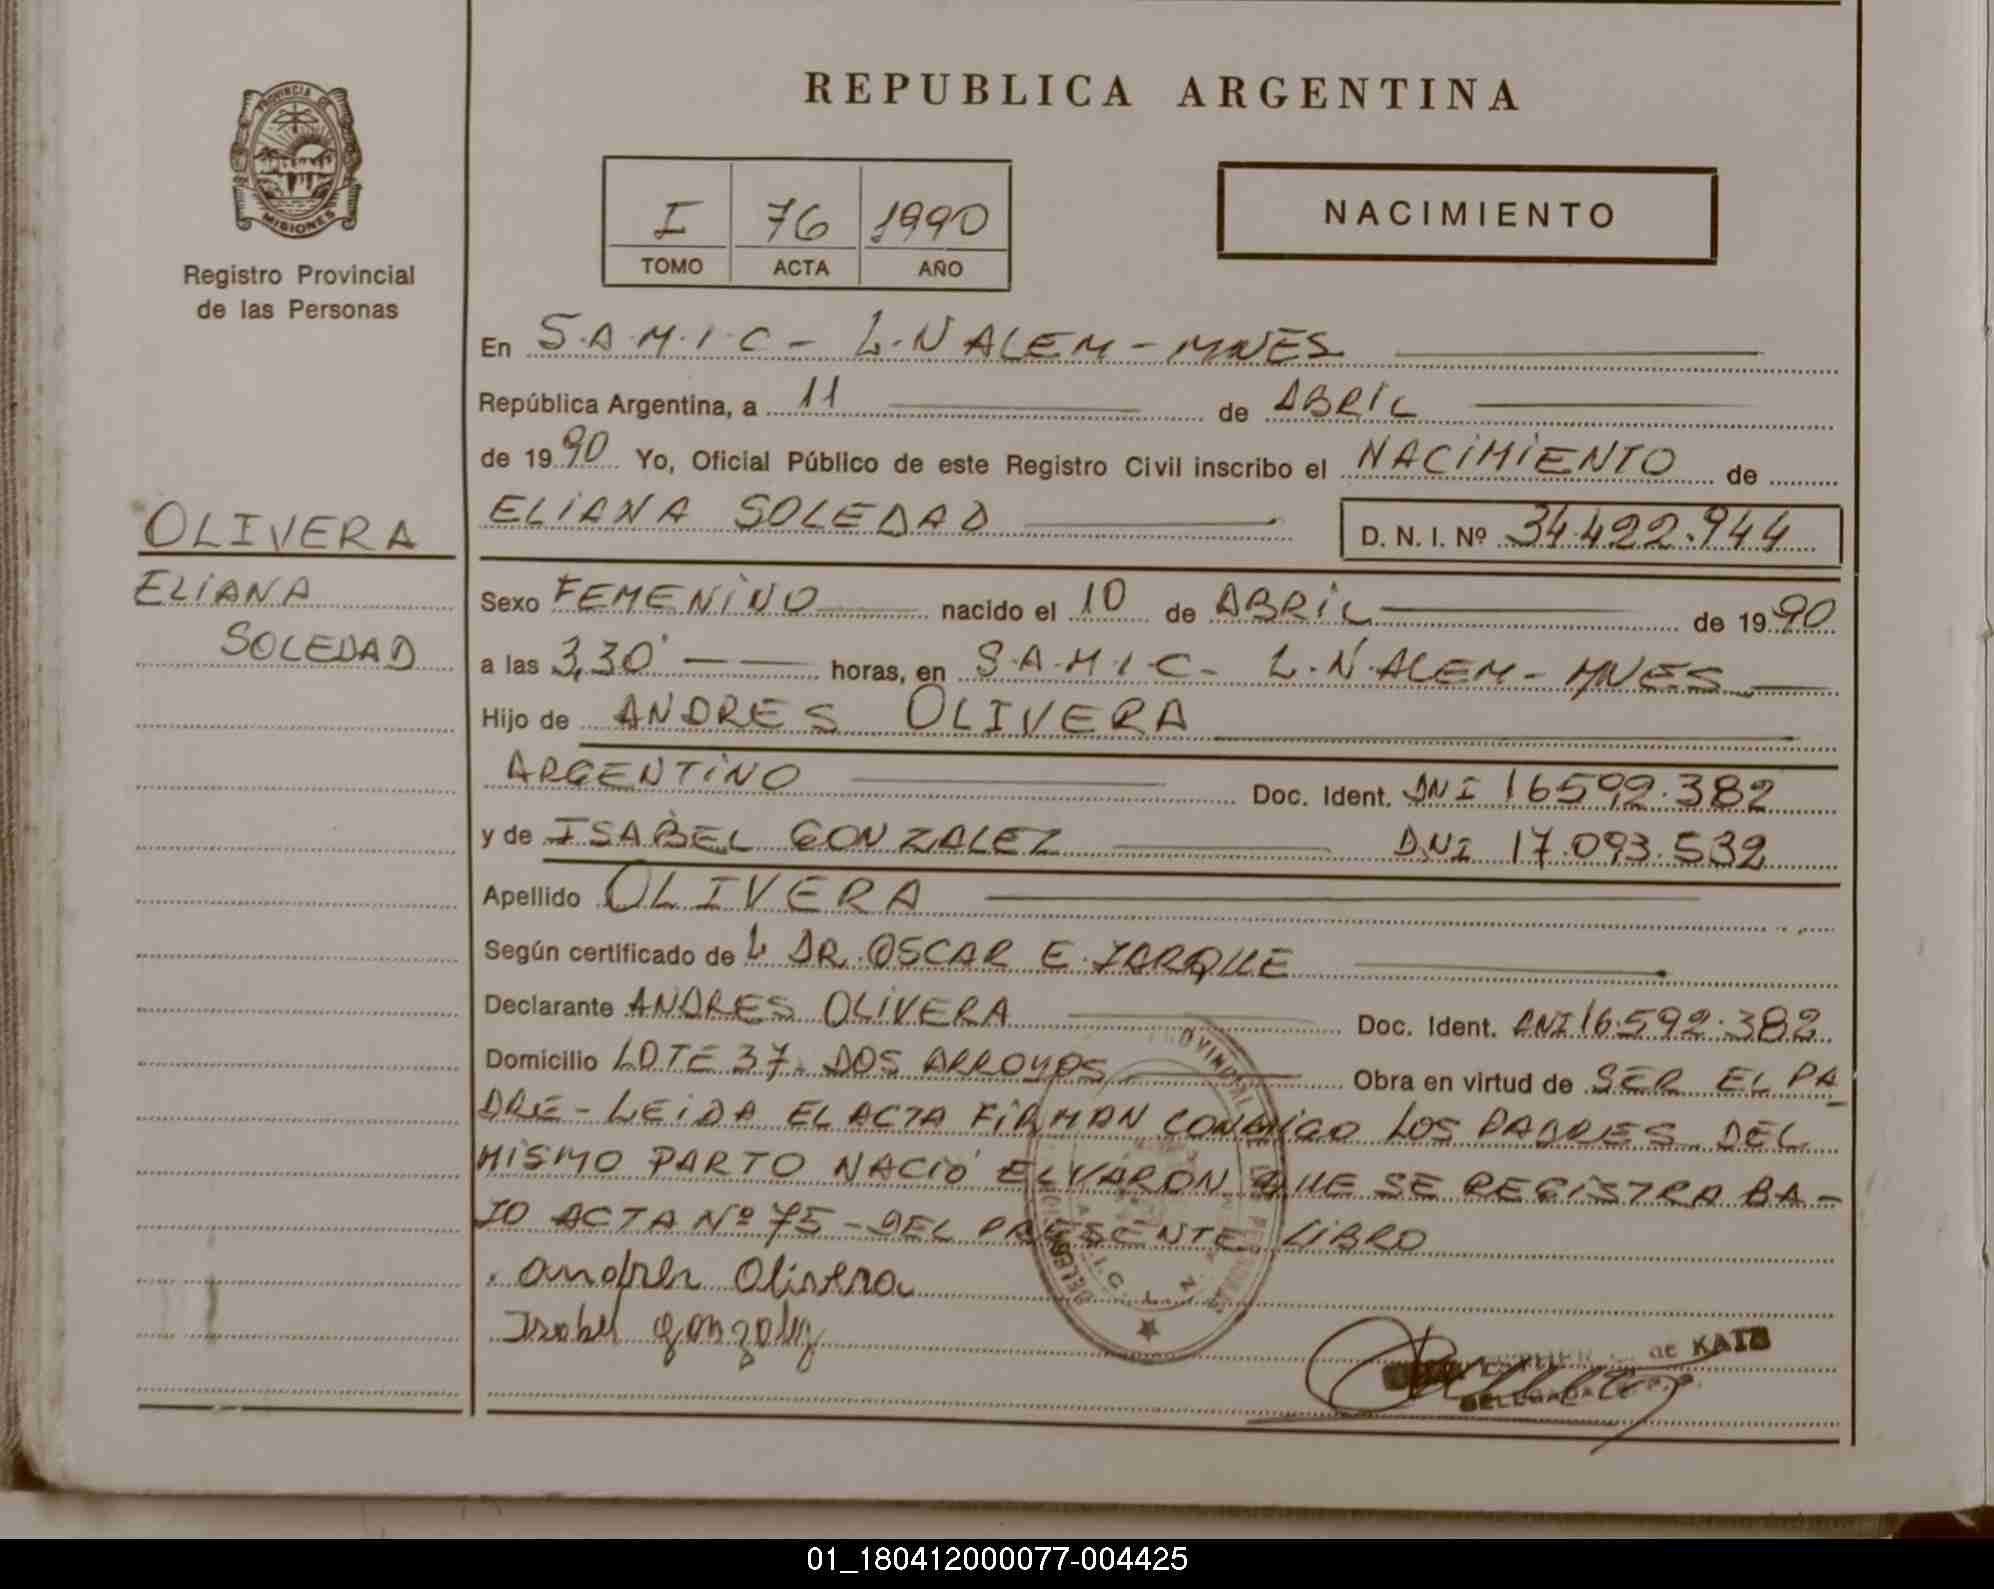 REPUBLICA ARGENTINA
PROVINCIA DE
MISIONES
Registro Provincial
de las Personas
I 76 1990
TOMO ACTA AÑO
NACIMIENTO
En S.A.M.I.C - L.N ALEM - MNES
República Argentina, a 11 de ABRIL
de 1990 Yo, Oficial Público de este Registro Civil inscribo el NACIMIENTO de
ELIANA SOLEDAD D. N. I. Nº 34.422.944
OLIVERA
ELIANA
SOLEDAD
Sexo FEMENINO nacido el 10 de ABRIL de 1990
a las 3,30 horas, en S.A.M.I.C - L.N.ALEM - MNES
Hijo de ANDRES OLIVERA
ARGENTINO Doc. Ident. DNI 16592.382
y de ISABEL GONZALEZ DNI 17.093.532
Apellido OLIVERA
Según certificado de L DR. OSCAR E. JARQUE
Declarante ANDRES OLIVERA Doc. Ident. DNI 16.592.382
Domicilio LOTE 37. DOS ARROYOS Obra en virtud de SER EL PA
DRE - LEIDA EL ACTA FIRMAN CONMIGO LOS PADRES DEL
MISMO PARTO NACIO EL VARON QUE SE REGISTRA BA-
JO ACTA Nº 75 - DEL PRESENTE LIBRO
Andres Olivera
Isabel gonzalez
de KATZ
DELEGADA
01_180412000077-004425